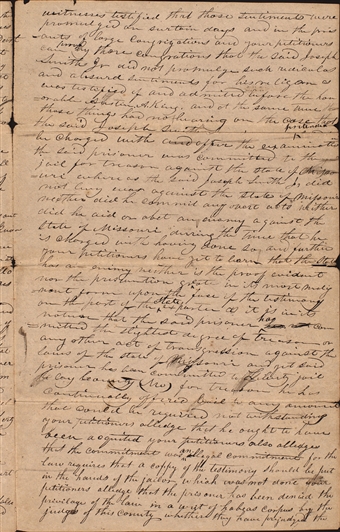 witnesses testified that those sentiments were
promulged on certain days and in the pre
sents of large congregations and your petitioners
can prove by those congregations that the said Joseph
Smith Jr did not promulge such rediculous
and absurd sentiments for his religeon as
was testified of and admited before the hon
orable Austin A King and at the same time
those things had no bearing on the case that
the said Joseph Smith
be charged with and after the examination
the said prisoner was committed to the
jail for treason against the State of Missou
ri whereas the said Joseph Smith Jr did
not levy war against the State of Missouri
neither did he commit any overt acts neither
did he aid or abet an enemy against the
State of Missouri during the time that he
is charged with having done so and further
your petitioners have yet to learn that the State
has an enemy neither is the proof evident
nor the presumption great in its most malig
nant form upon the face of the testimony
on the part of the State exparte as it is in its
nature that the said prisoner has com
mitted the slightest degree of treason or
any other act of transgression against the
laws of the State of Missouri and yet said
prisoner has been committed to Liberty jail
Clay County (Mo) for treason he has
continually offered bail to any amount
that could be required notwithstanding
your petitioners alledge that he ought to have
been acquited your petitioners also alledges
that the commitment was an illegal commitment for the
law requires that a coppy of the testimony should be put
in the hands of the jailor which was not done
petitioners alledge that the prisoner has been denied the
privilage of the law in a writ of habeas corpus by the
judges of this county whether they have prejudged the